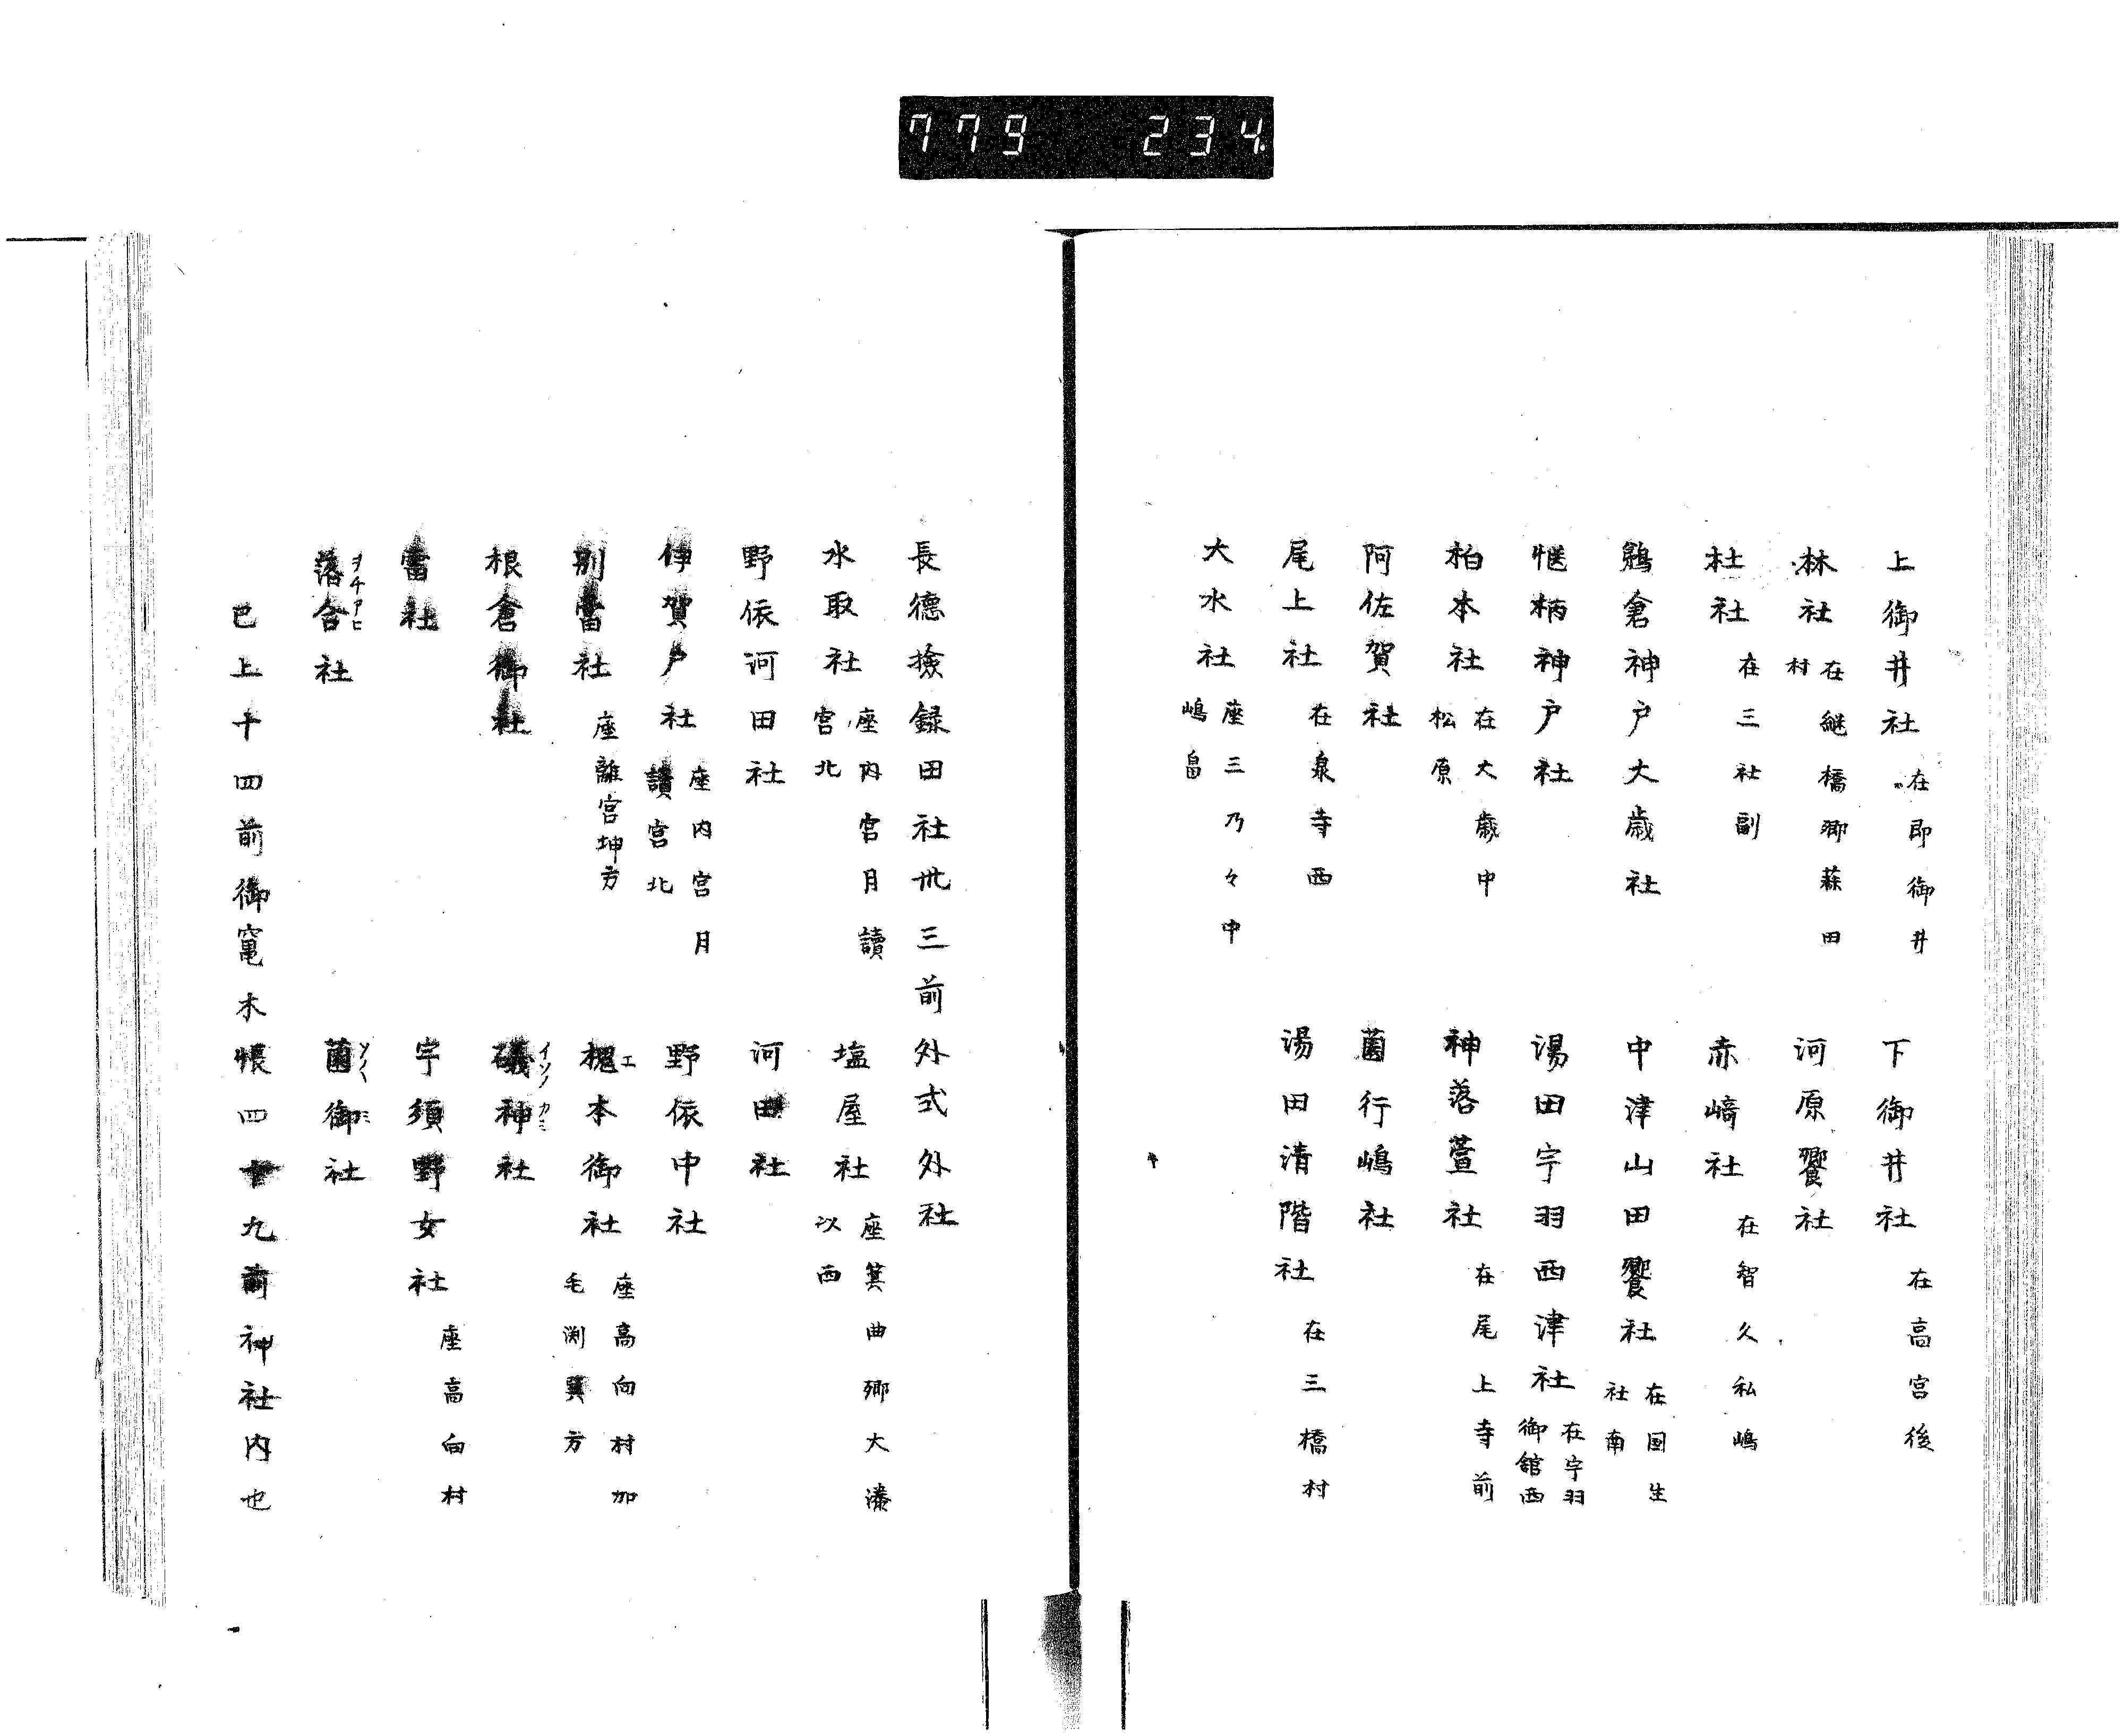 779 234
上御井社 在即御井
下御井社 在高宮後
林社 在継橋郷蘇田村
河原饗社
杜社 在三社副
赤﨑社 在智久私嶋
鵜倉神戸大歳社
中津山田饗社 在国生社南
慥柄神戸社
湯田宇羽西津社 在宇羽御舘西
柏本社 在大歳中松原
神落萱社 在尾上寺前
阿佐賀社
菌行嶋社
尾上社 在泉寺西
湯田清階社 在三橋村
大水社 座三乃々中嶋畠
長徳撿録田社卅三前外式外社
水取社 座内宮月讀宮北
塩屋社 座箕曲郷大湊以西
野依河田社
河田社
伊賀戸社 座内宮月讀宮北
野依中社
別當社 座離宮坤方
槐本御社 座高向村加毛渕巽方
エ
根倉御社
礒神社
イソノカミ
當社
宇須野女社 座高向村
落合社
ヲチアヒ
菌御社
已上十四前御竃木帳四十九前神社内也